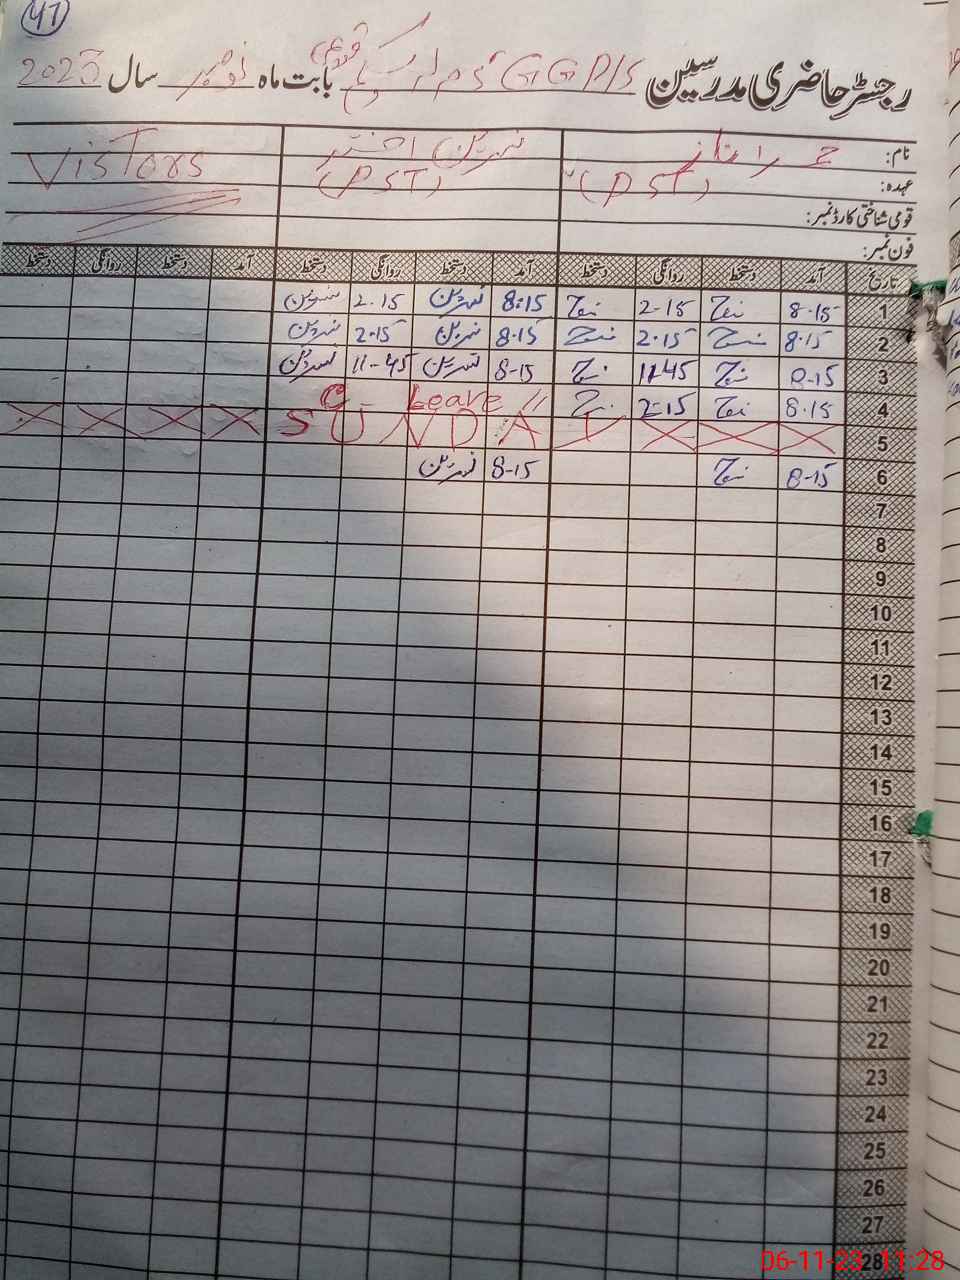 47
رجسٹر حاضری مدرسین GGP/S بابت ماہ نومبر سال 2023
نام:
نسرین اختر
Vistors
عہدہ: (PST) (PST)
قومی شناختی کارڈ نمبر:
فون نمبر:
تاریخ آمد دستخط روانگی دستخط آمد دستخط روانگی دستخط آمد دستخط روانگی دستخط
1 8.15 2-15 8:15 نسرین 2.15 نسرین
2 8.15 2.15 8.15 نسرین 2.15 نسرین
3 8-15 11.45 8-15 نسرین 11-45 نسرین
4 8.15 2-15 Leave C
5 SUNDAY
6 8-15 8-15 نسرین
7
8
9
10
11
12
13
14
15
16
17
18
19
20
21
22
23
24
25
26
27
28
06-11-23 11:28